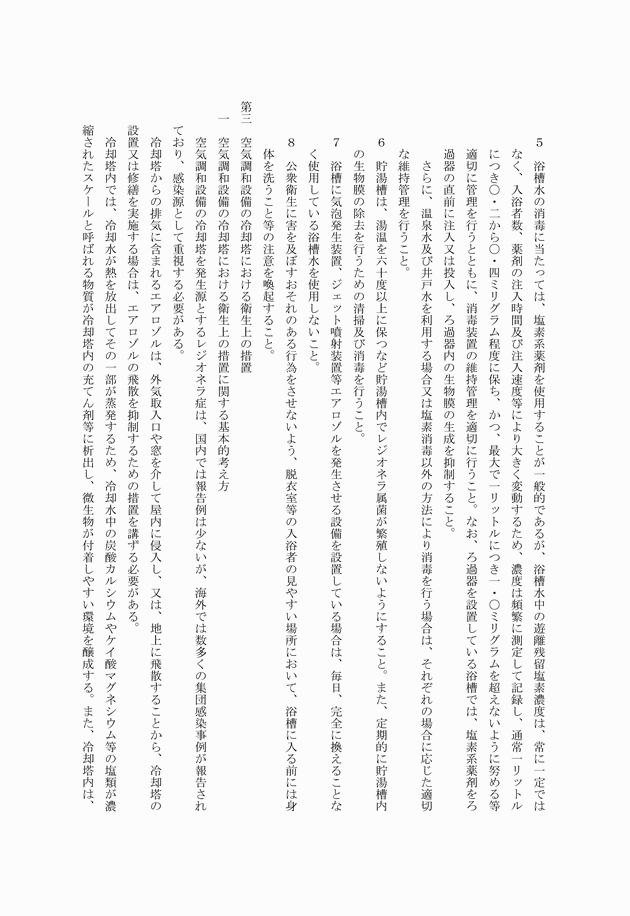 5　浴槽水の消毒に当たっては、塩素系薬剤を使用することが一般的であるが、浴槽水中の遊離残留塩素濃度は、常に一定では
なく、入浴者数、薬剤の注入時間及び注入速度等により大きく変動するため、濃度は頻繁に測定して記録し、通常一リットル
につき〇・二から〇・四ミリグラム程度に保ち、かつ、最大で一リットルにつき一・〇ミリグラムを超えないように努める等
適切に管理を行うとともに、消毒装置の維持管理を適切に行うこと。なお、ろ過器を設置している浴槽では、塩素系薬剤をろ
過器の直前に注入又は投入し、ろ過器内の生物膜の生成を抑制すること。
さらに、温泉水及び井戸水を利用する場合又は塩素消毒以外の方法により消毒を行う場合は、それぞれの場合に応じた適切
な維持管理を行うこと。
6　貯湯槽は、湯温を六十度以上に保つなど貯湯槽内でレジオネラ属菌が繁殖しないようにすること。また、定期的に貯湯槽内
の生物膜の除去を行うための清掃及び消毒を行うこと。
7　浴槽に気泡発生装置、ジェット噴射装置等エアロゾルを発生させる設備を設置している場合は、毎日、完全に換えることな
く使用している浴槽水を使用しないこと。
8　公衆衛生に害を及ぼすおそれのある行為をさせないよう、脱衣室等の入浴者の見やすい場所において、浴槽に入る前には身
体を洗うこと等の注意を喚起すること。
第三　空気調和設備の冷却塔における衛生上の措置
一　空気調和設備の冷却塔における衛生上の措置に関する基本的考え方
空気調和設備の冷却塔を発生源とするレジオネラ症は、国内では報告例は少ないが、海外では数多くの集団感染事例が報告され
ており、感染源として重視する必要がある。
冷却塔からの排気に含まれるエアロゾルは、外気取入口や窓を介して屋内に侵入し、又は、地上に飛散することから、冷却塔の
設置又は修繕を実施する場合は、エアロゾルの飛散を抑制するための措置を講ずる必要がある。
冷却塔内では、冷却水が熱を放出してその一部が蒸発するため、冷却水中の炭酸カルシウムやケイ酸マグネシウム等の塩類が濃
縮されたスケールと呼ばれる物質が冷却塔内の充てん剤等に析出し、微生物が付着しやすい環境を醸成する。また、冷却塔内は、